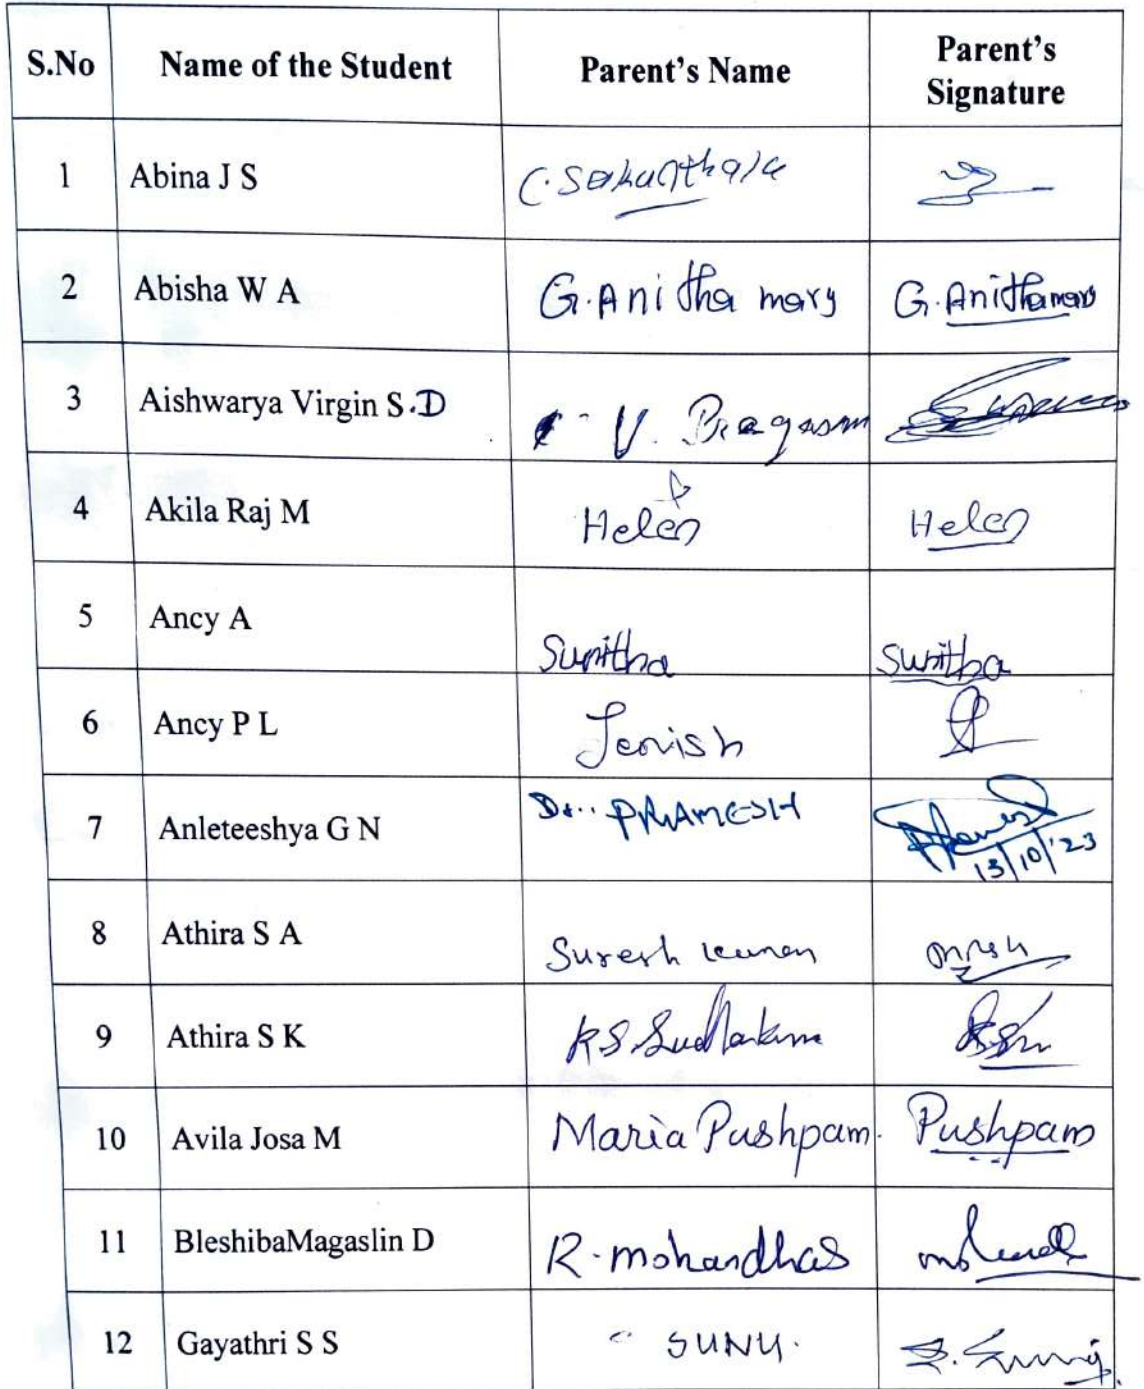 S.No Name of the Student Parent's Name Parent's Signature
1 Abina J S C. Sakunthala
2 Abisha W A G. Anitha mary G. Anithamary
3 Aishwarya Virgin S.D V. Pragasm
4 Akila Raj M Helen Helen
5 Ancy A Sunitha Sunitha
6 Ancy P L Jenish
7 Anleteeshya G N Dr. PRAMESH 13/10/'23
8 Athira S A Suresh kumar
9 Athira S K
10 Avila Josa M Maria Pushpam. Pushpam
11 BleshibaMagaslin D R. mohandhas
12 Gayathri S S SUNU.